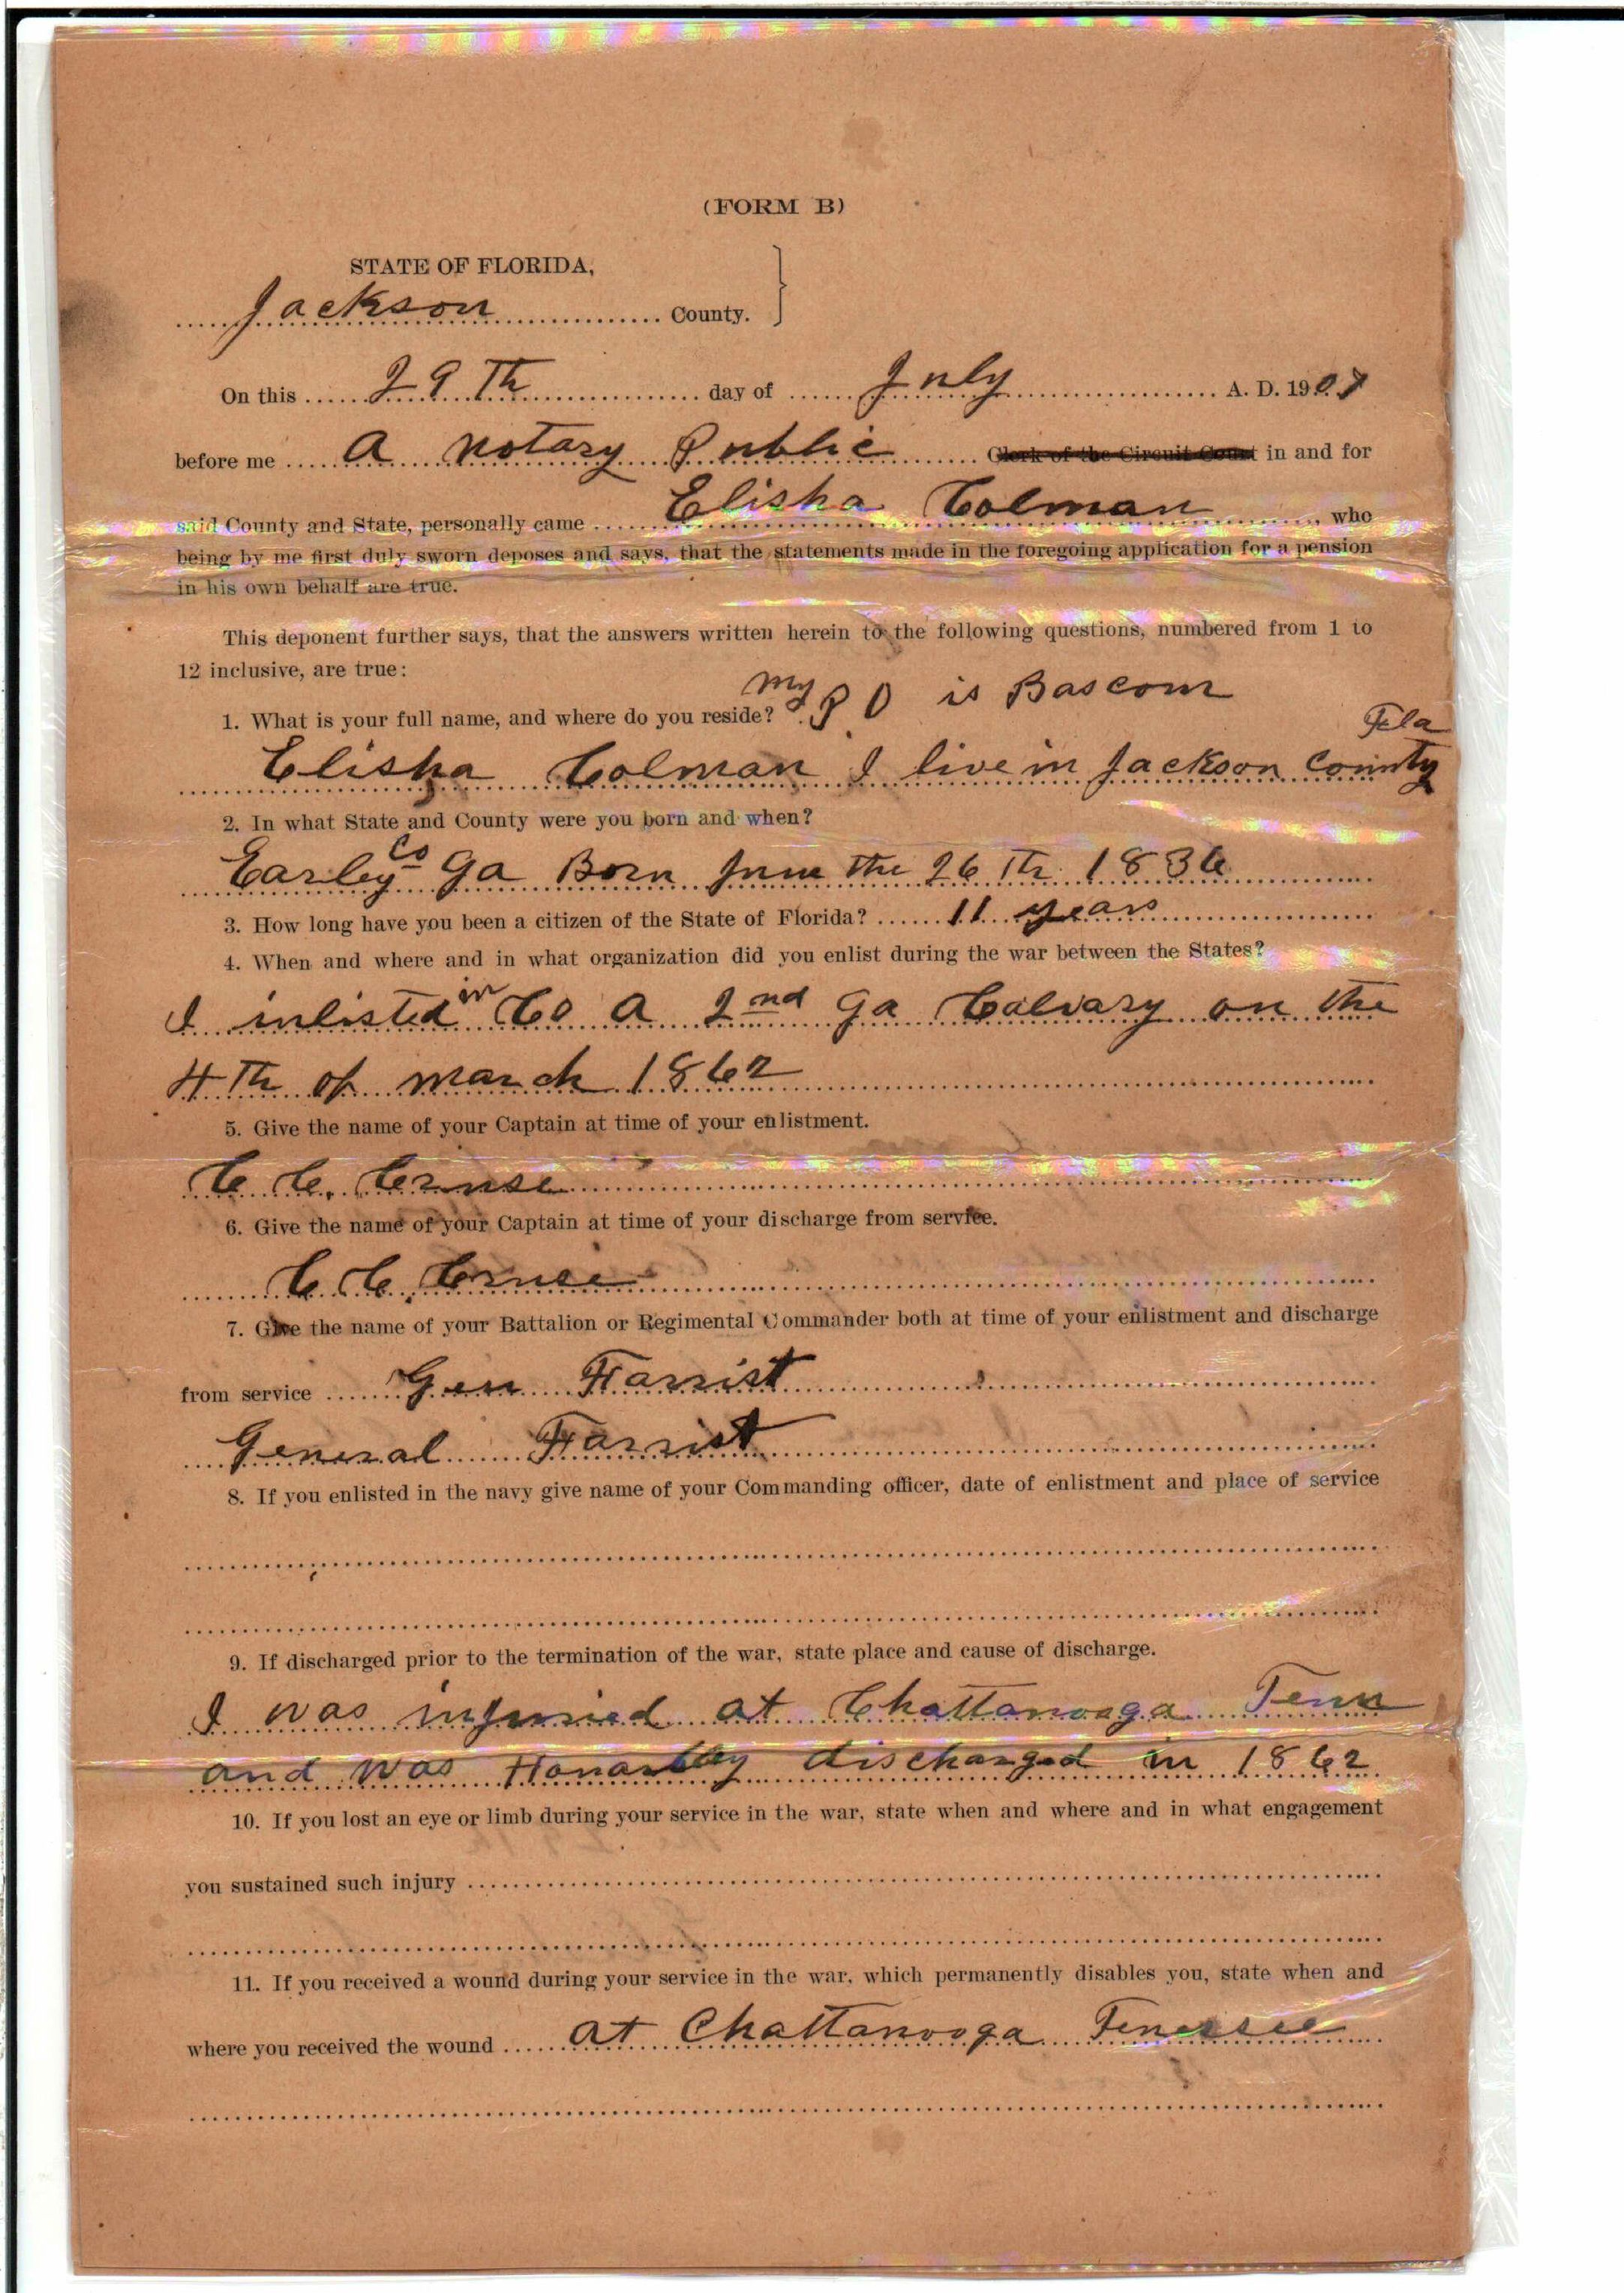 (FORM B)
STATE OF FLORIDA,
Jackson County.
On this 29 Th day of July A. D. 1907
before me a notary Public Clerk of the Circuit Court in and for
said County and State, personally came Elisha Colman, who
being by me first duly sworn deposes and says, that the statements made in the foregoing application for a pension
in his own behalf are true.
This deponent further says, that the answers written herein to the following questions, numbered from 1 to
12 inclusive, are true:
1. What is your full name, and where do you reside? my P O is Bascom
Fla
Elisha Colman I live in Jackson County
2. In what State and County were you born and when?
Earley Co Ga Born June the 26 Th 1836
3. How long have you been a citizen of the State of Florida? 11 years
4. When and where and in what organization did you enlist during the war between the States?
I inlisted in Co A 2nd Ga Calvary on the
4 Th of march 1862
5. Give the name of your Captain at time of your enlistment.
C. C. Cruse
6. Give the name of your Captain at time of your discharge from service.
C C Cruse
7. Give the name of your Battalion or Regimental Commander both at time of your enlistment and discharge
from service Gen Farrist
General Farrist
8. If you enlisted in the navy give name of your Commanding officer, date of enlistment and place of service
9. If discharged prior to the termination of the war, state place and cause of discharge.
I was injuried at Chattanooga Tenn
and was discharged in 1862
10. If you lost an eye or limb during your service in the war, state when and where and in what engagement
you sustained such injury
11. If you received a wound during your service in the war, which permanently disables you, state when and
where you received the wound at Chattanooga Tenessee